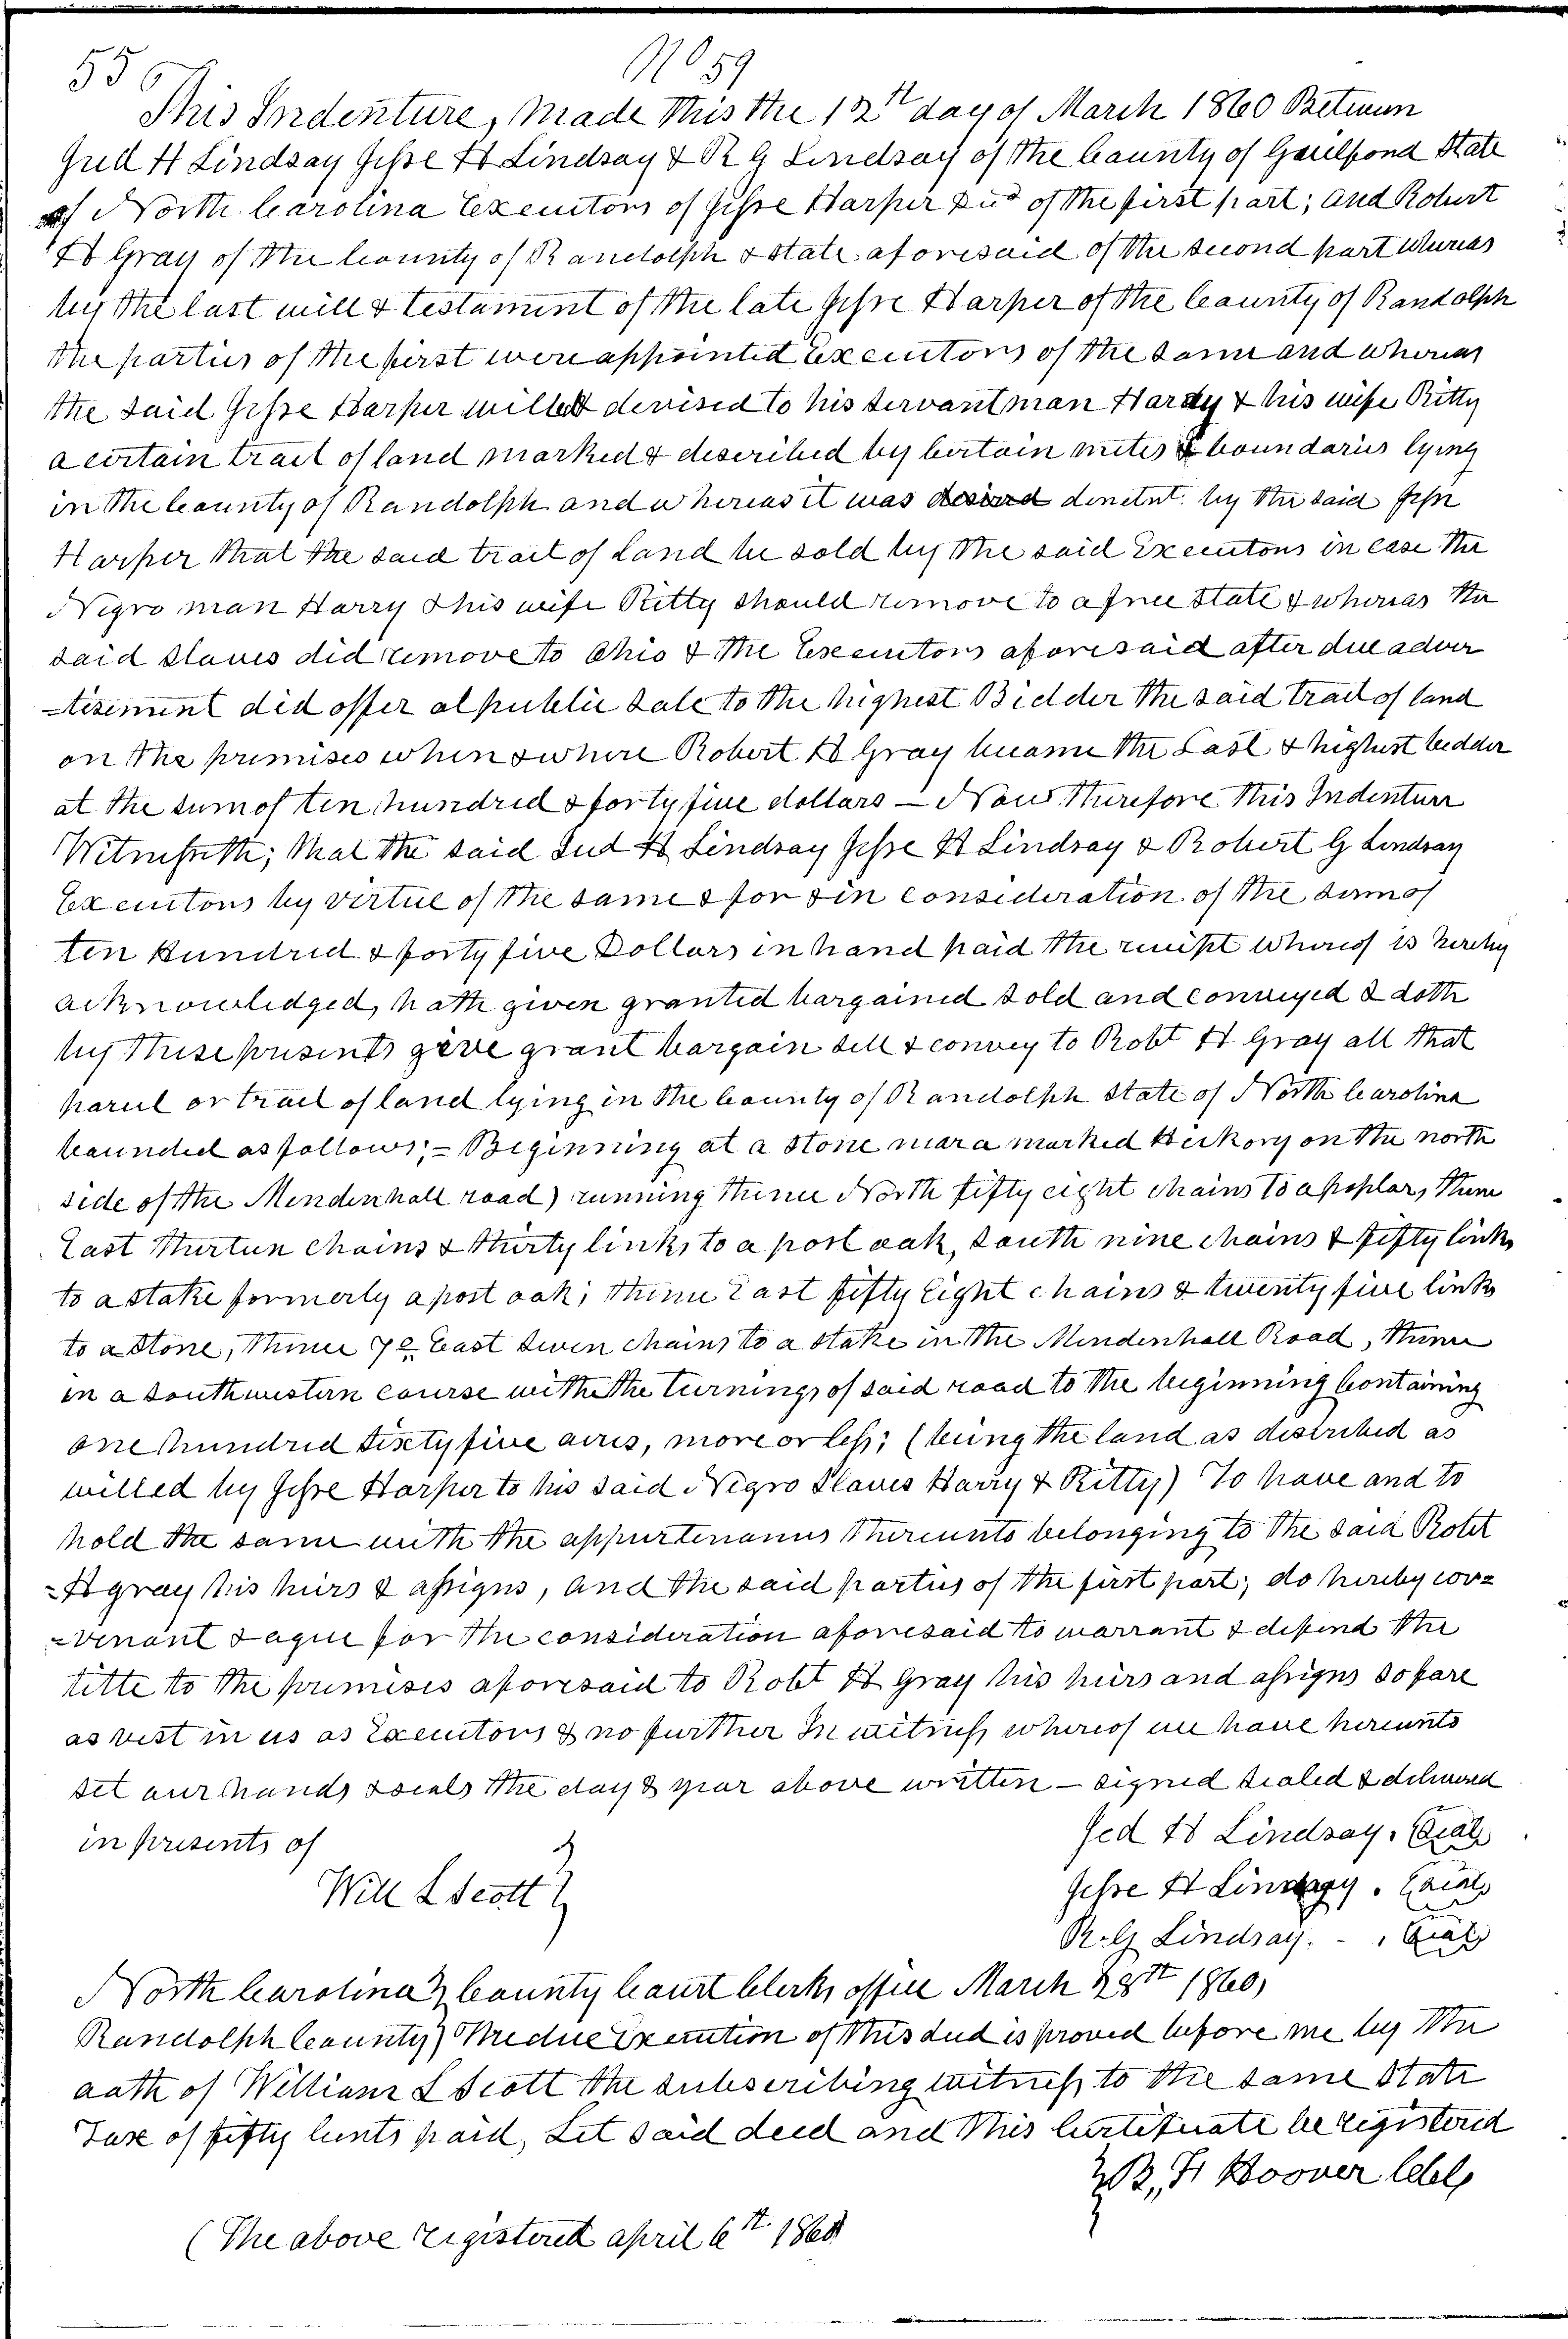 55 No 59
This Indenture, Made This the 12th day of March 1860 Between
Jed H Lindsay Jesse H Lindsay & R G Lindsay of the County of Guilford State
of North Carolina Executors of Jesse Harper Decd of the first part; and Robert
H Gray of the County of Randolph & state aforesaid of the second part whereas
by the last will & testament of the late Jesse Harper of the County of Randolph
the parties of the first were appointed executors of the same and whereas
the said Jesse Harper willed devised to his servant man Hardy & his wife Kitty
a certain tract of land marked & described by certain metes & boundaries lying
in the County of Randolph and whereas it was by the said Jesse
Harper that the said tract of Land be sold by the said Executors in case the
Negro man Harry & his wife Kitty should remove to a free state & whereas the
said slaves did remove to Ohio & the Executors aforesaid after due adver
-tisement did offer at public sale to the highest Bidder the said tract of land
on the premises when & where Robert H Gray became the Last & highest bidder
at the sum of ten hundred & forty five dollars – Now Therefore This Indenture
Witnesseth; that the said Jud H Lindsay Jesse H Lindsay & Robert G Lindsay
Executors by virtue of the same & for & in consideration of the sum of
ten hundred & forty five Dollars in hand paid the receipt whereof is hereby
acknowledged, hath given granted bargained sold and conveyed & doth
by these presents give grant bargain sell & convey to Robt H Gray all that
parcel or tract of land lying in the County of Randolph State of North Carolina
bounded as follows; – Beginning at a stone near a marked Hickory on the north
side of the Mendenhall road) running thence North fifty eight chains to a poplar, thence
East thirteen chains & thirty links to a post oak, south nine chains & fifty links
to a stake formerly a post oak; thence East fifty eight chains & twenty five links
to a stone, thence 72 East seven chains to a stake in the Mendenhall Road, thence
in a southwestern course with the turnings of said road to the beginning Containing
one hundred sixty five acres, more or less; (being the land as described as
willed by Jesse Harper to his said Negro Slaves Harry & Kitty) To have and to
hold the same with the appurtenances thereunto belonging to the said Robt
-H gray his heirs & assigns, and the said parties of the first part; do hereby cov=
=venant & agree for the consideration aforesaid to warrant & defend the
title to the premises aforesaid to Robt H Gray his heirs and assigns so fare
as vest in us as Executors & no further In witness whereof we have hereunto
set our hands & seals the day & year above written – signed sealed & delivered
in presents of Jed H Lindsay. (Seal)
Will L Scott Jesse H Lindsay. (Seal)
R. G Lindsay. - . (Seal)
North Carolina County Court Clerks office March 28th 1860,
Randolph County) The due Execution of this deed is proved before me by the
oath of William L Scott the subscribing witness to the same State
Tax of fifty cents paid, Let said deed and this Certificate be registered
B,, F. Hoover Clk
(The above registered april 6th 1860